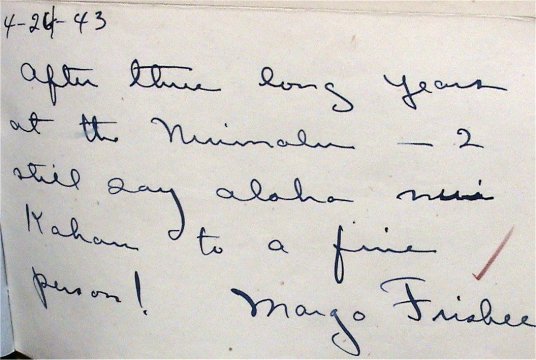 4-24-43
After three long years
at the Niumalu — I
still say aloha nui
Kahau to a fine
person!
Margo Frisbee